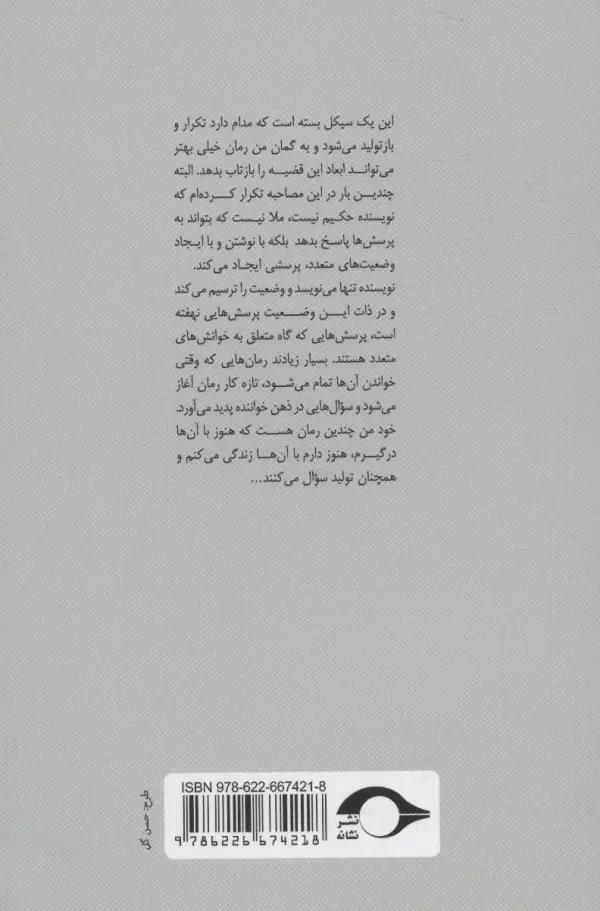 این یک سیکل بسته است که مدام دارد تکرار و
بازتولید می‌شود و به گمان من رمان خیلی بهتر
می‌تواند ابعاد این قضیه را بازتاب بدهد. البته
چندین بار در این مصاحبه تکرار کرده‌ام که
نویسنده حکیم نیست، ملا نیست که بتواند به
پرسش‌ها پاسخ بدهد بلکه با نوشتن و با ایجاد
وضعیت‌های متعدد، پرسشی ایجاد می‌کند.
نویسنده تنها می‌نویسد و وضعیت را ترسیم می‌کند
و در ذات این وضعیت پرسش‌هایی نهفته
است، پرسش‌هایی که گاه متعلق به خوانش‌های
متعدد هستند. بسیار زیادند رمان‌هایی که وقتی
خواندن آن‌ها تمام می‌شود، تازه کار رمان آغاز
می‌شود و سؤال‌هایی در ذهن خواننده پدید می‌آورد.
خود من چندین رمان هست که هنوز با آن‌ها
درگیرم، هنوز دارم با آن‌ها زندگی می‌کنم و
همچنان تولید سؤال می‌کنند...
طرح: حسن گل
ISBN 978-622-667421-8
9 786226 674218
نشر
نشانه